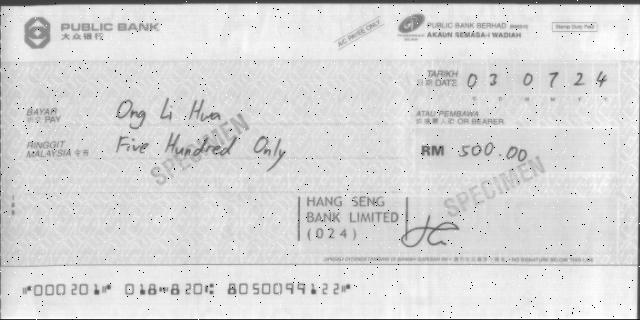 PUBLIC BANK
大众银行
A/C PAYEE ONLY
PUBLIC BANK BERHAD
AKAUN SEMASA-i WADIAH
Stamp Duty Paid
TARIKH
日期 DATE
03 07 24
D D M M Y Y
BAYAR
PAY
Ong Li Hua
ATAU PEMBAWA
OR BEARER
RINGGIT
MALAYSIA
Five Hundred Only
RM 500.00
SPECIMEN
SPECIMEN
HANG SENG
BANK LIMITED
(024)
NO SIGNATURE BELOW THIS LINE
⑈000201⑈ 018⑉8201⑆ 8050099122⑈